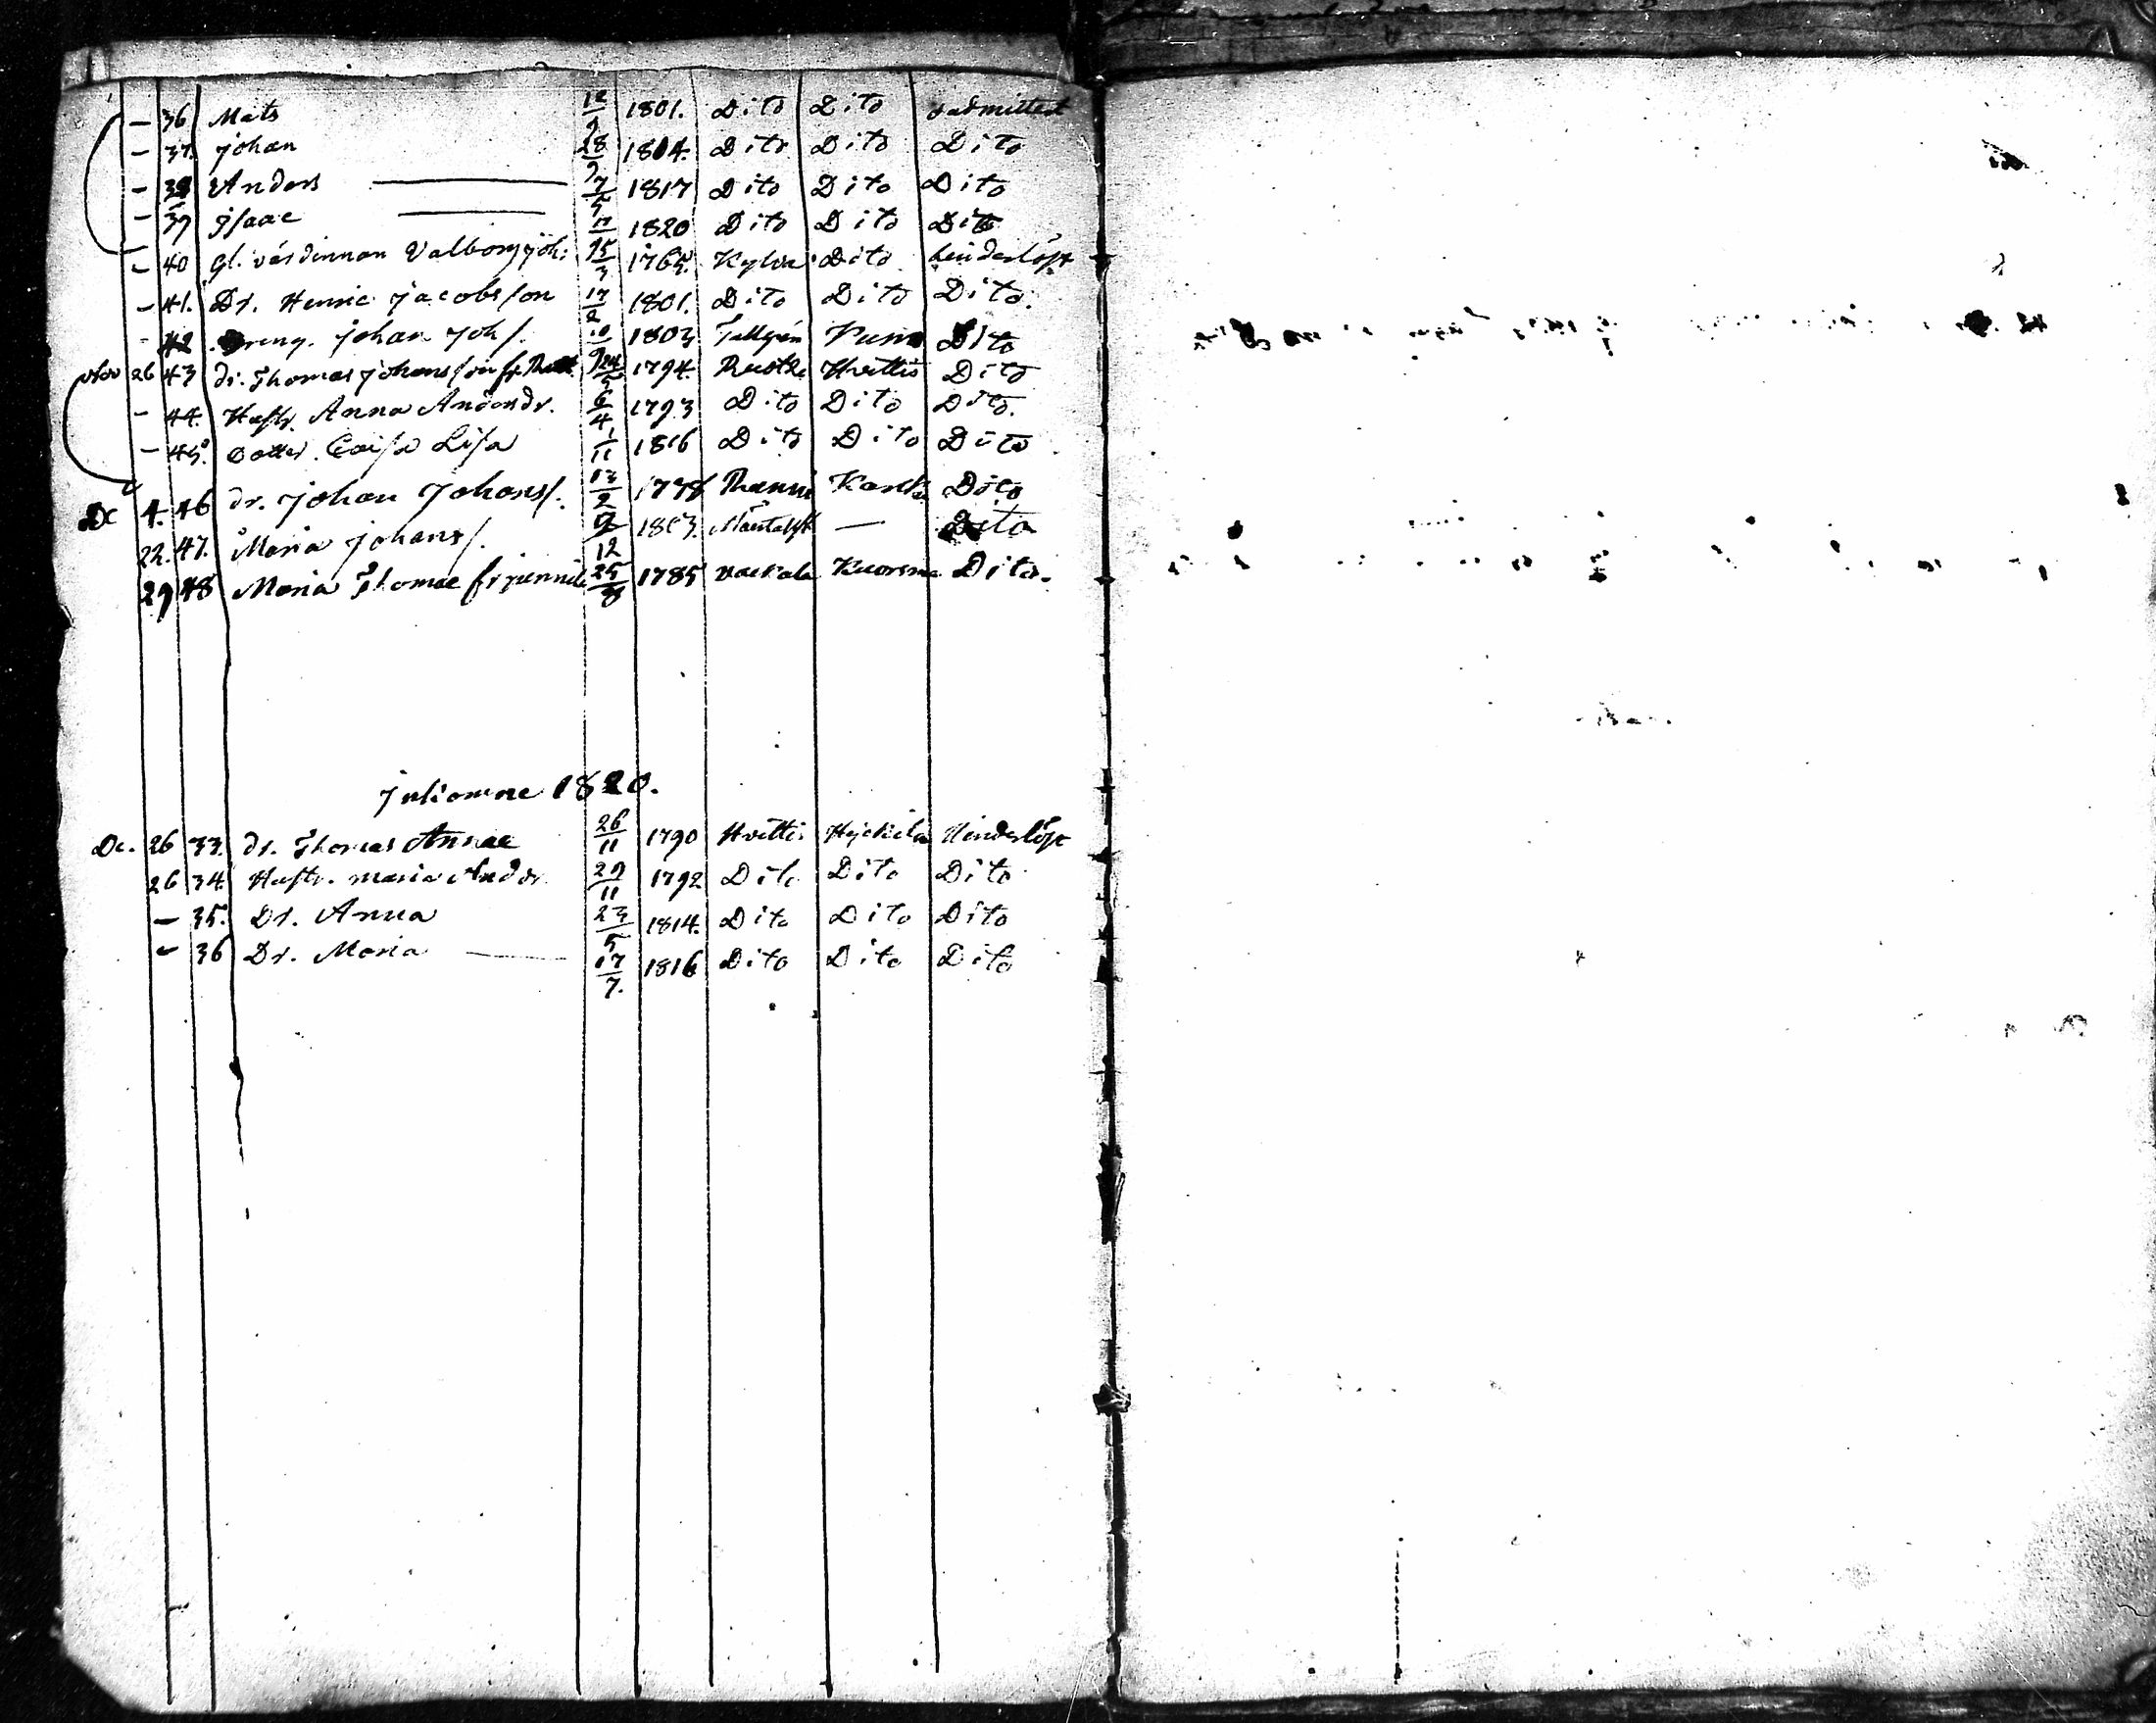 — 36 Mats 12/9 1801. Dito Dito oadmitterd
— 37. Johan 28/9 1804. Dito Dito Dito
— 38 Anders — 7/5 1817 Dito Dito Dito
— 39 Isaac — 1820 Dito Dito Dito
— 40 Gl. värdinnan Valborg Joh: 15/3 1765. Dito hinderlöst
— 41. Dr. Henric Jacobsson 17/2 1801. Dito Dito Dito.
- 42 Dreng. Johan Johs. 10/9 1803 Dito
Nov 26 43 dr. Thomas Johansson fr. 24/5 1794. Hvittis Dito
— 44. Hustr. Anna Andersdr. 6/4 1793 Dito Dito Dito.
— 45. Dotter. Caisa Lisa 1/11 1816 Dito Dito Dito
De 4. 46 dr. Johan Johanss. 13/2 Dito
22. 47. Maria Johanss. /12 — Dito
29 48 Maria Thomae fr 25/8 1785 Dito.
1820.
De. 26 33. dr. Thomas Annae 26/11 1790 Hvittis Hinderlöst
26 34. Hustr. Maria Anddr. 29/11 1792 Dito Dito Dito
— 35. Dr. Anna 23/5 1814. Dito Dito Dito
— 36 Dr. Maria — 17/7. 1816 Dito Dito Dito